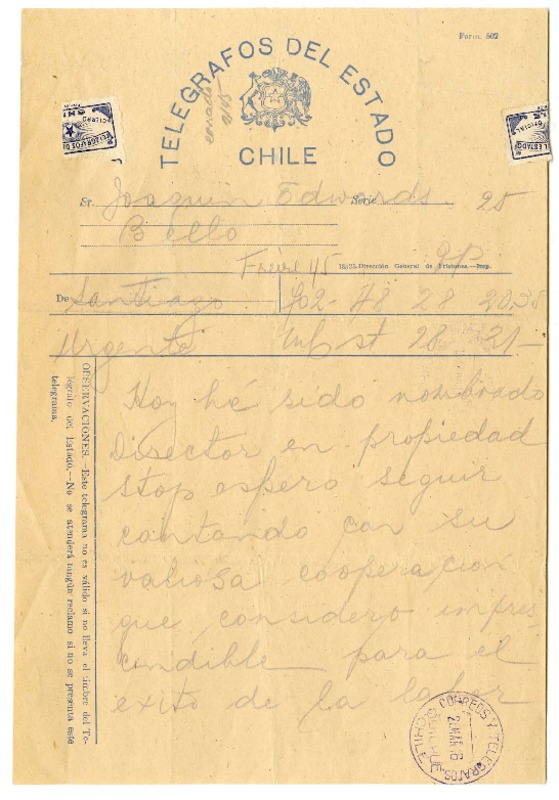 Form. 502
TELEGRAFOS DEL ESTADO
CHILE
Sr. Joaquin Edwards Serie 25
Bello
Freire 45
Dirección General de Prisiones.—Imp.
De Santiago 702-48 28 20,35
Urgente 28 21-
OBSERVACIONES.—Este telegrama no es válido si no lleva el timbre del Te-
légrafo del Estado.—No se atenderá ningún reclamo si no se presenta este
telegrama.
Hoy hé sido nombrado
Director en propiedad
stop espero seguir
contando con su
valiosa cooperacion
que considero impres
cindible para el
exito de la labor
CORREOS Y TELEGRAFOS
CHILE